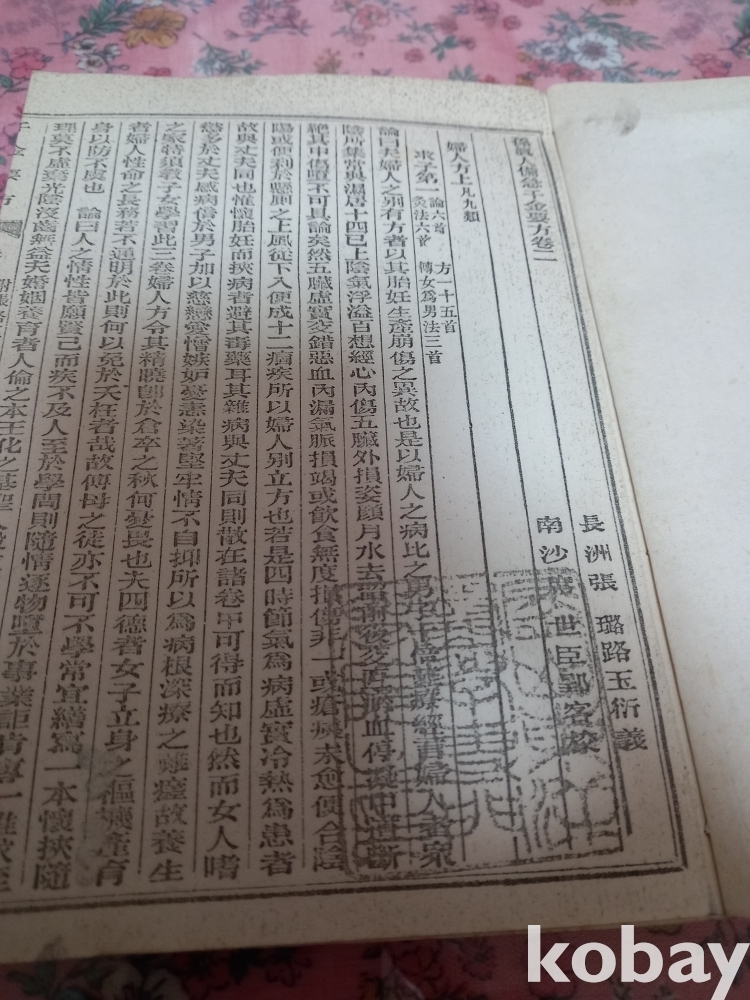 孫眞人備急千金要方卷二
長洲張 璐路玉衍義
南沙席 世臣郢客校
婦人方上凡九類
求子第一 論六首 灸法六首 方一十五首 傳女爲男法三首
論曰夫婦人之別有方者以其胎妊生產崩傷之異故也是以婦人之病比之男子十倍難療經言婦人者衆
陰所集常與濕居十四已上陰氣浮溢百想經心內傷五臟外損姿顏月水去留前後交互瘀血停凝中道斷
絕其中傷墮不可具論矣然五臟虛實交錯惡血內漏氣脈損竭或飮食無度損傷非一或瘡痍未愈便合陰
陽或便利於懸厠之上風從下入便成十二痼疾所以婦人別立方也若是四時節氣爲病虛實冷熱爲患者
故與丈夫同也惟懷胎妊而挾病者避其毒藥耳其雜病與丈夫同則散在諸卷中可得而知也然而女人嗜
慾多於丈夫感病倍於男子加以慈戀愛憎嫉妒憂恚染著堅牢情不自抑所以爲病根深療之難瘥故養生
之家特須敎子女學習此三卷婦人方令其精曉卽於倉卒之秋何憂畏也夫四德者女子立身之樞機產育
者婦人性命之長務若不通明於此則何以免於夭枉者哉故傅母之徒亦不可不學常宜繕寫一本懷挾隨
身以防不虞也 論曰人之情性皆願賢己而疾不及人至於學問則隨情逐物墮於事業詎肯專一推求至
理莫不虛棄光陰沒齒無益夫婚姻養育者人倫之本王化之基聖人
kobay